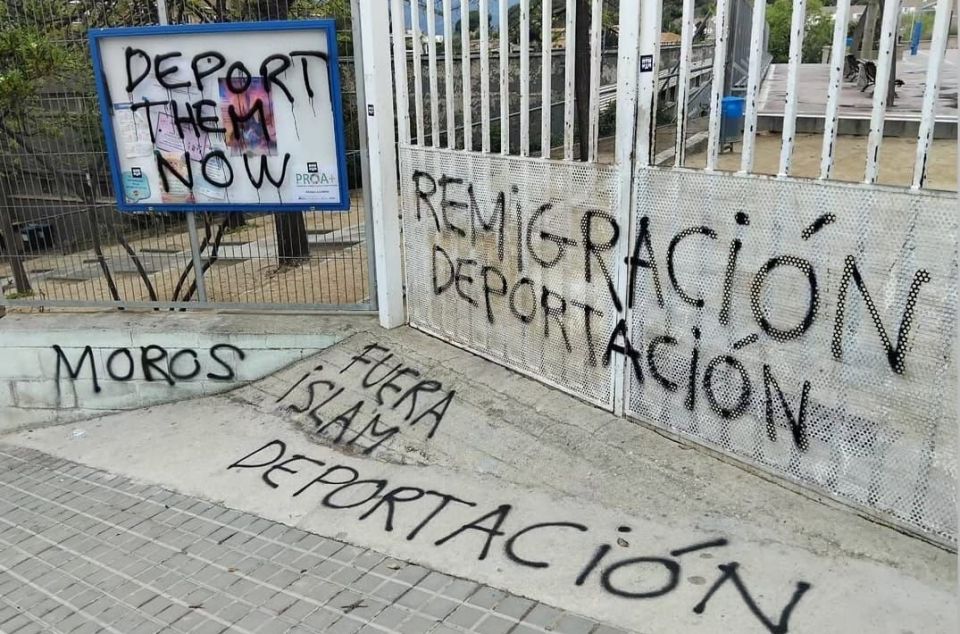 DEPORT
THEM
NOW
PROA+
REMiGRACiÓN
DEPORTACiÓN
MOROS
FUERA
iSLAM
DEPORTACiÓN